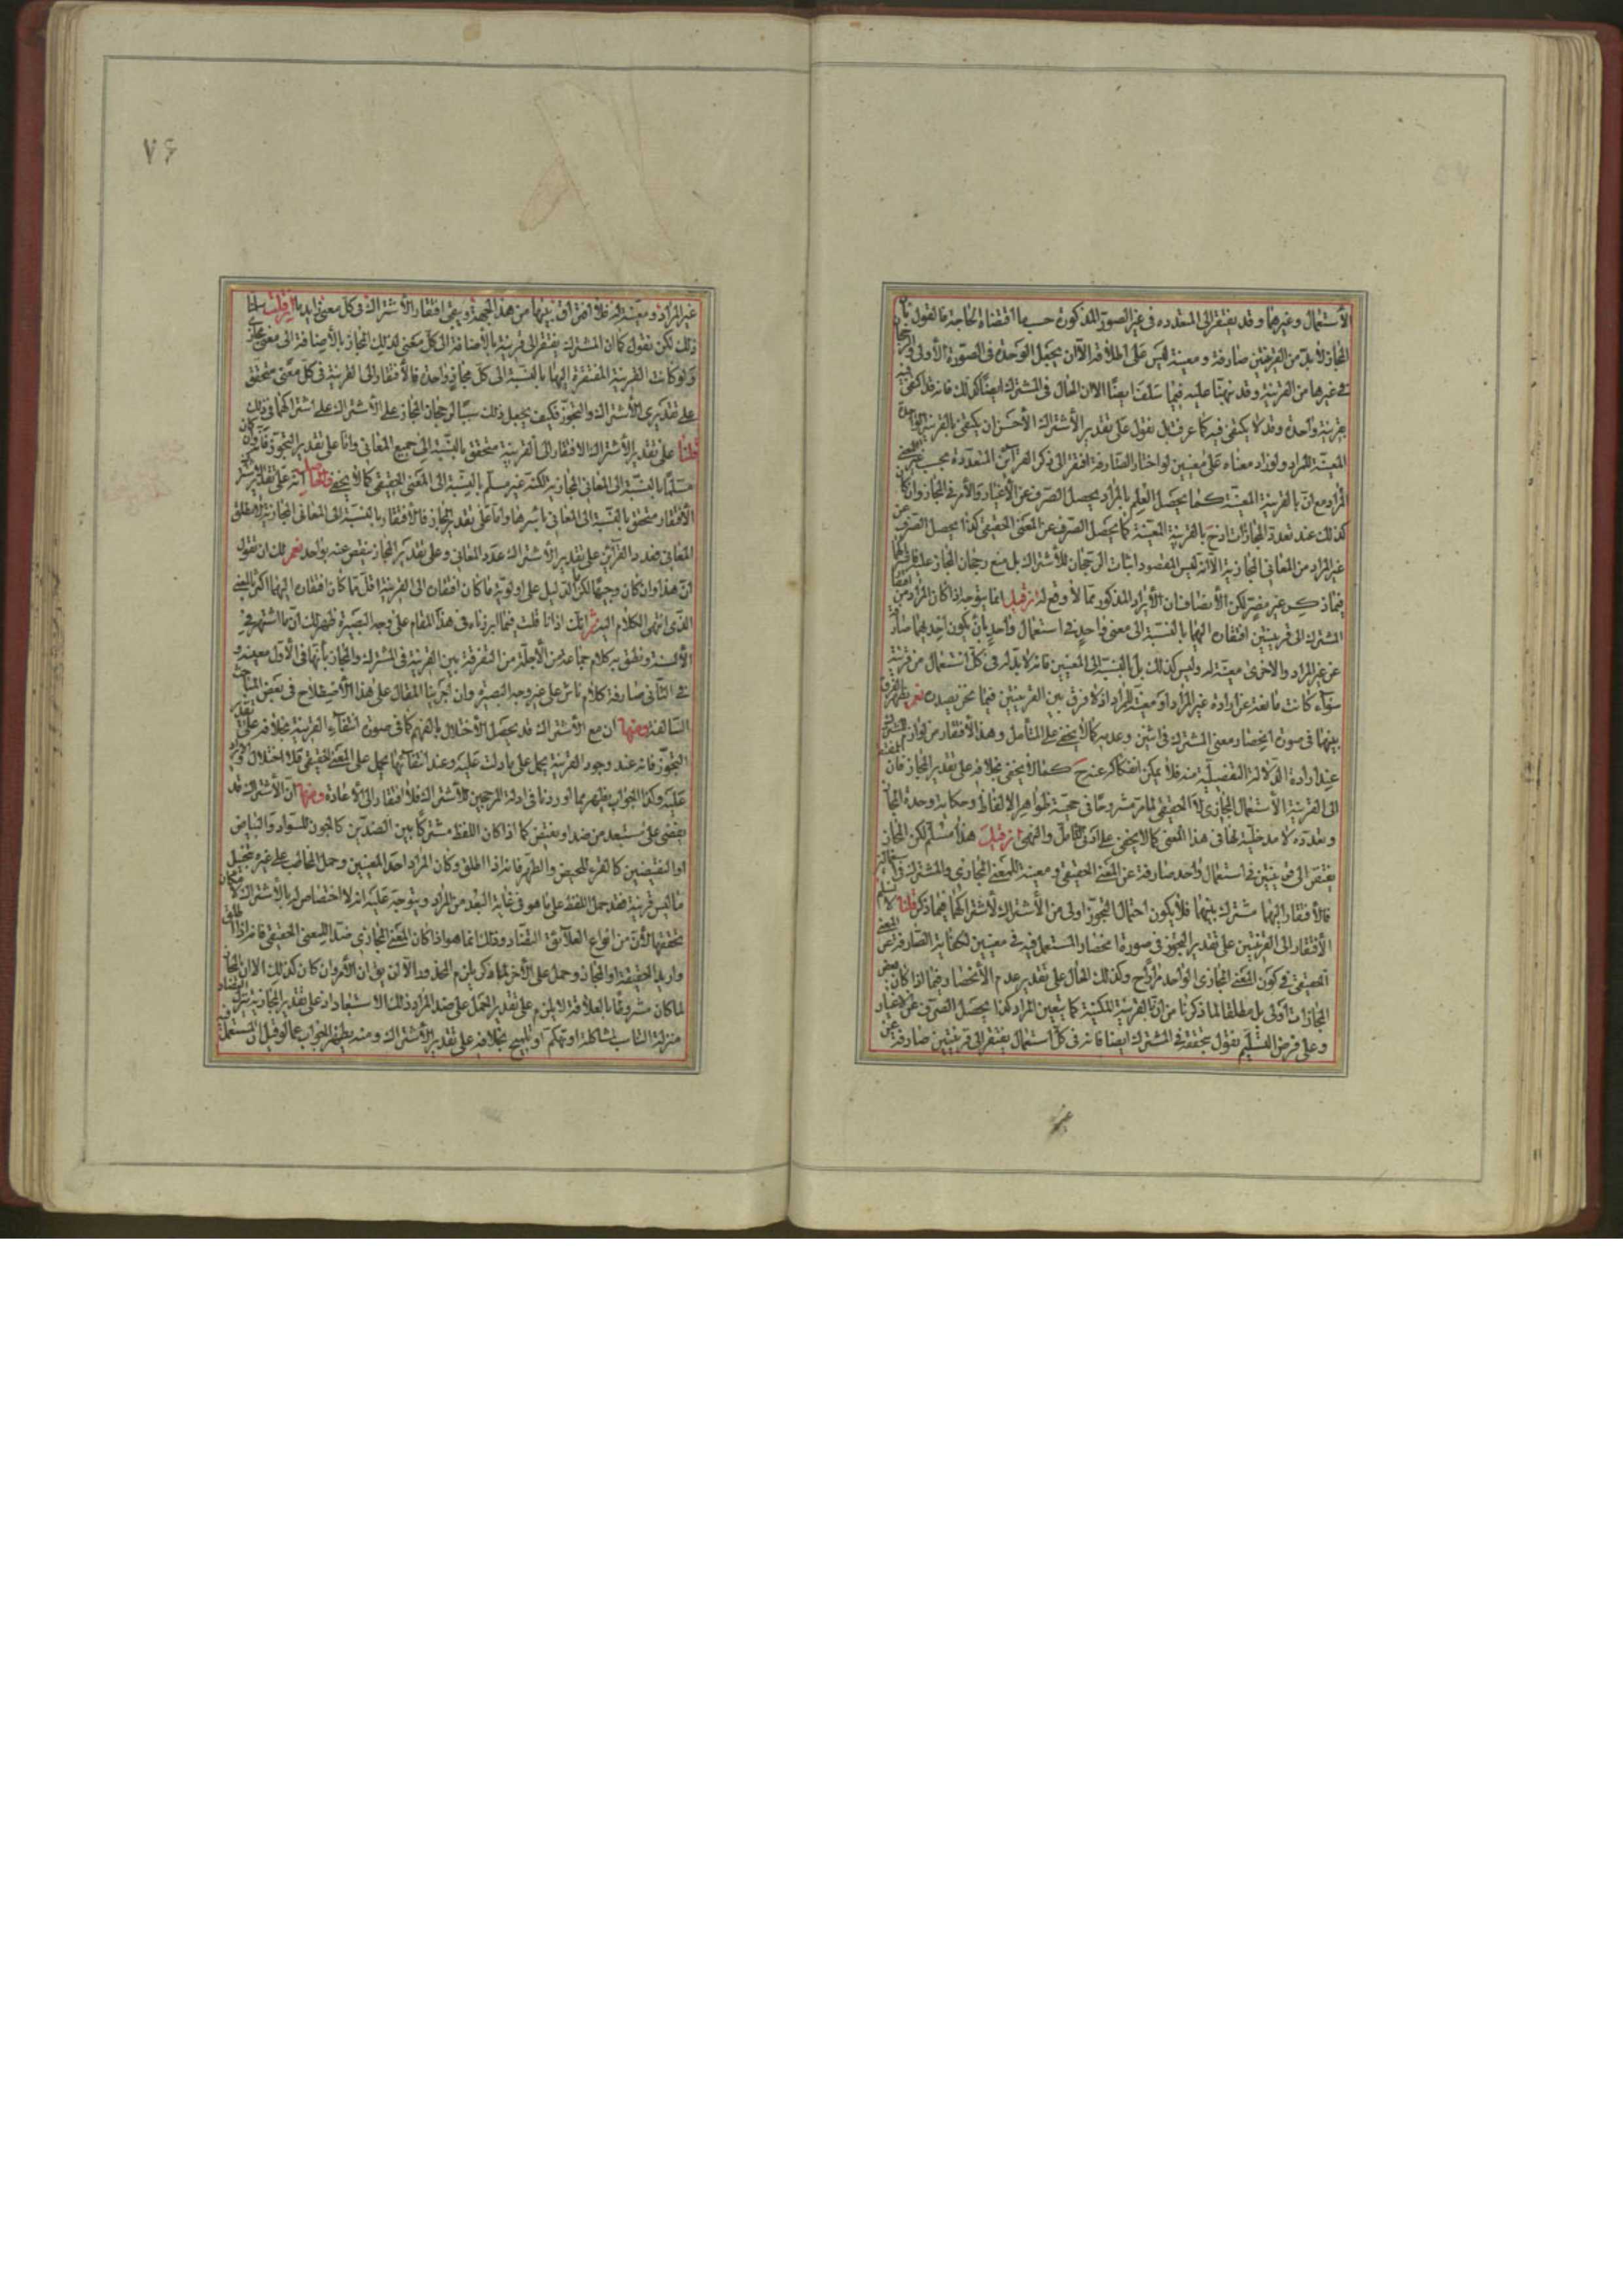 الأستعمال وغيرهما وقد يفتقر إلى المتعدده فى غير الصورة المذكورة حسبما اقتضاه الحاجة فالقول بان
المجاز لا بدّ من القرينتين صارفة ومعينة ليس على اطلاقه الا ان يجعل الوحدة فى الصّورة الأولى
فى غيرها من القرينة وقد نبهنا عليه فيما سلف ايضًا الا ان الحال فى المشترك ايضًا كذلك فانه قد يكتفى فيه
بقرينة واحدة وقد لا يكتفى فيه كما عرفت بل نقول على تقدير الأشتراك الأحسن ان يكتفى بالقرينة الواحدة
المعينة للمراد ولو اراد معناه على معنيين لو اختار الصارفة افتقر الى ذكر القرائن المتعددة بحسب
المراد مع ان بالقرينة المعينة كما يحصل العلم بالمراد يحصل الصرف عن الأغيار والأمر فى المجاز وان كان
كذلك عند تعدد المجازات اذ ح بالقرينة المعينة كما يحصل الصرف عن المعنى الحقيقى كذا يحصل الصرف عن
غير المراد من المعانى المجازية الا انه ليس المقصود اثبات الرجحان للأشتراك بل منع رجحان المجاز عليه
فيما ذكر غير مضرّ لكن الأنصاف ان الأيراد المذكور ممّا لا وقع له ان قيل انما يتوجه اذا كان المراد من افتقار
المشترك الى قرينتين افتقاره اليهما بالنسبة الى معنى واحد فى استعمال واحد بان يكون احديهما صارفة
عن غير المراد والاخرى معينة له وليس كذلك بل بالنسبة الى المعنيين فانه لا بدّ له فى كلّ استعمال من قرينة
سوآء كانت مانعة عن ارادة غير المراد او معينة للمراد اذ لا فرق بين القرينتين فيما نحن بصدده نعم يظهر الفرق
بينهما فى صورة انحصار معنى المشترك فى اثنين وعدمه كما لا يخفى على المتأمل وهذا الأفتقار من لوازم المشترك
عند ارادة الدّلالة التفصيليّة منه فلا يمكن انفكاكه عنه ح كما لا يخفى بخلافه على تقدير المجاز فان المفتقر
الى القرينة الأستعمال المجازى لا الحقيقى لما مرّ مشروحًا فى حجية ظواهر الالفاظ وحكاية وحدة المجاز
وتعدده لا مدخلية لها فى هذا المعنى كما لا يخفى على ادنى التأمل والنهى ان قيل هذا مسلّم لكن المجاز
يفتقر الى قرينتين فى استعمال واحد صارفة عن المعنى الحقيقى ومعينة للمعنى المجازى والمشترك فى استعمالين
فالأفتقار اليهما مشترك بينهما فلا يكون احتمال التجوّز اولى من الأشتراك لأشتراكهما فيما ذكر قلنا لا نسلم
الأفتقار الى القرينتين على تقدير التجوز فى صورة انحصار المستعمل فيه فى معنيين لكفاية الصّارفة عن المعنى
الحقيقى فى كون المعنى المجازى الواحد مرادًا ح وكذلك الحال على تقدير عدم الأنحصار فيما اذا كان بعض
المجازات اولى بل مطلقا لما ذكرنا من انّ بالقرينة المعينة كما يتعين المراد كذا يحصل الصرف عن الأغيار
وعلى فرض التسليم نقول بتحققه فى المشترك ايضا فانه فى كلّ استعمال يفتقر الى قرينتين صارفة عن
غير
٧۶
غير المراد ومعيّنة له فلا افتراق بينهما من هذه الجهة ويبقى افتقار الأشتراك فى كل معنى زايد بالـ ان قلت سلمنا
ذلك لكن نقول كما ان المشترك يفتقر الى قرينة بالأضافة الى كلّ معنى كذلك المجاز بالأضافة الى معنى مجازى
ولو كانت القرينة المفتقرة اليها بالنسبة الى كلّ مجاز واحدة فالأفتقار الى القرينة فى كلّ معنى متحقق
على تقديرى الأشتراك والتجوز فكيف يجعل ذلك سببًا لرجحان المجاز على الأشتراك على اشتراكهما فى ذلك
قلنا على تقدير الأشتراك الافتقار الى القرينة متحقق بالنسبة الى جميع المعانى وامّا على تقدير التجوّز فانّه وان كان
مسلّمًا بالنسبة الى المعانى المجازية لكنّه غير مسلّم بالنسبة الى المعنى الحقيقى كما لا يخفى فالحاصل انّه على تقدير الأشتراك
الأفتقار متحقق بالنسبة الى المعانى باسرها وامّا على تقدير المجاز فالأفتقار بالنسبة الى المعانى المجازية لا مطلق
المعانى فعدد القرآئن على تقدير الأشتراك عدد المعانى وعلى تقدير المجاز ينقص عنه بواحد نعم لك ان تقول
انّ هذا وان كان وجيهًا لكن الدّليل على اولويّة ما كان افتقاره الى القرينة اقلّ ممّا كان افتقاره اليها اكثر بالنحو
الذّى انتهى الكلام اليه ثمّ انّك اذا تأملت فيما ابرزناه فى هذا المقام على وجه البصيرة ظهر لك انّ ما اشتهر فى
الألسنة ونطق به كلام جماعة من الأجلّة من التفرقة بين القرينة فى المشترك والمجاز بأنّها فى الأوّل معينة و
فى الثّانى صارفة كلام ناش على غير وجه البصيرة وان اجرينا المقال على هذا الأصطلاح فى بعض المباحث
السّالفة ومنها ان مع الأشتراك قد يحصل الأختلال بالفهم كما فى صورة انتفآء القرينة بخلافه على تقدير
التجوّز فانه عند وجود القرينة يحمل على ما دلت عليه وعند انتفآئها يحمل على المعنى الحقيقى فلا اختلال
عليه وكذا الجواب يظهر مما اوردنا فى ادلة المرجحين للأشتراك فلا افتقار الى الأعادة ومنها انّ الأشتراك قد
يفضى على مستبعد من ضد او نقيض كما اذا كان اللفظ مشتركًا بين الضدّين كالجون للسّواد والبياض
او النقيضين كالقرء للحيض والطهر فانه اذا اطلق وكان المراد احد المعنيين وحمل المخاطب على غيره بتخيّل
ما ليس قرينة قرينة فقد حمل اللفظ على ما هو فى غاية البعد من المراد ويتوجه عليه انه لا اختصاص له بالأشتراك لامكان
تحققها لأنّ من انواع العلآئق التضّاد وذلك انما هو اذا كان المعنى المجازى ضدًّا للمعنى الحقيقى فانه اذا اطلق
واريد الحقيقة او المجاز وحمل على الأخر لما ذكر يلزم المحذور الاّ ان يقال ان الأمر وان كان كذلك الا ان المجاز
لما كان مشروطًا بالعلاقة لا يلزم على تقدير الحمل على ضد المراد ذلك الاستبعاد اذ على تقدير المجازية يتنزل التضاد
منزلة التناسب لمشاكلة او تهكم او تلميح بخلافه على تقدير الأشتراك ومنه يظهر الجواب عما لو قيل ان المستعمل